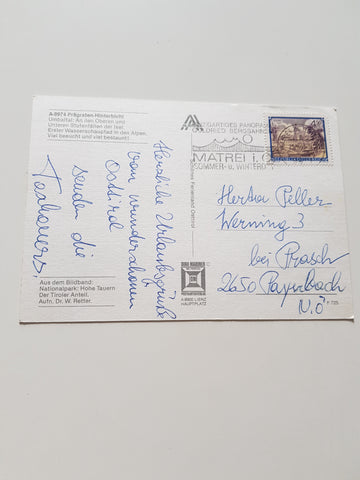 A-9974 Prägraten-Hinterbichl
Umbaltal: An den Oberen und
Unteren Stufenfällen der Isel.
Erster Wasserschaupfad in den Alpen.
Viel besucht und viel bestaunt!
Herzliche Urlaubsgrüße
vom wunderschönen
Osttirol
senden die
Aus dem Bildband:
Nationalpark: Hohe Tauern
Der Tiroler Anteil.
Aufn. Dr. W. Retter.
Ferienland Osttirol
A-9900 LIENZ
HAUPTPLATZ
GOLDRIED BERGBAHN
MATREI i.O.
SOMMER- u. WINTER
Peller
Werning 3
bei Prasch
2650 Payerbach
N.Ö